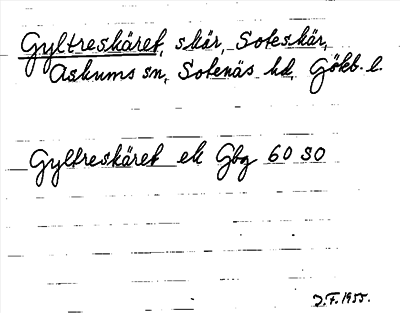 Gyltreskäret, skär, Soteskär,
Askums sn, Sotenäs hd, Gökb. l.
Gyltreskäret ek Gbg 60 SO
J.F. 1955.